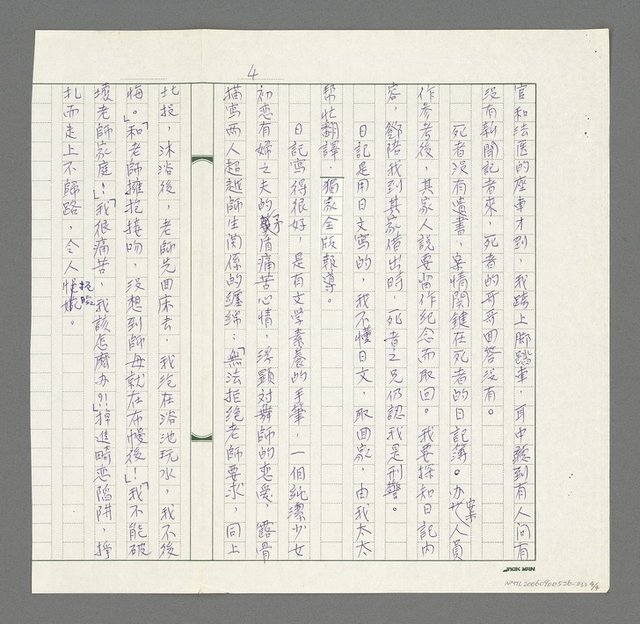 4
官和法医的座車才到，我踏上脚踏車，耳中聽到有人问有
没有新聞记者來，死者的哥哥回答没有。
死者没有遺書，案情関鍵在死者的日記簿。办案人員
作参考後，其家人説要留作纪念而取回。我要採知日記内
容，鄧陪我到其家借出時，死者之兄仍認我是刑警。
日記是用日文寫的，我不懂日文，取回家，由我太太
幫忙翻譯，獨家全版報導。
日記寫得很好，是有文学素養的手筆，一個純潔少女
初恋有婦之夫的矛盾痛苦心情，浮顕対舞師的恋愛，露骨
描寫两人超越師生関係的纏綿：「無法拒绝老師要求，同上
北投，沐浴後，老師先回來去，我泡在浴池玩水，我不後
悔。」「和老師擁抱接吻，没想到師母就在布幔後！」「我不能破
壊老師家庭！」「我很痛苦，我該怎麼办?!」掉進畸恋陷阱，掙
扎而走上不歸路，令人惋惜。
JACK MAN